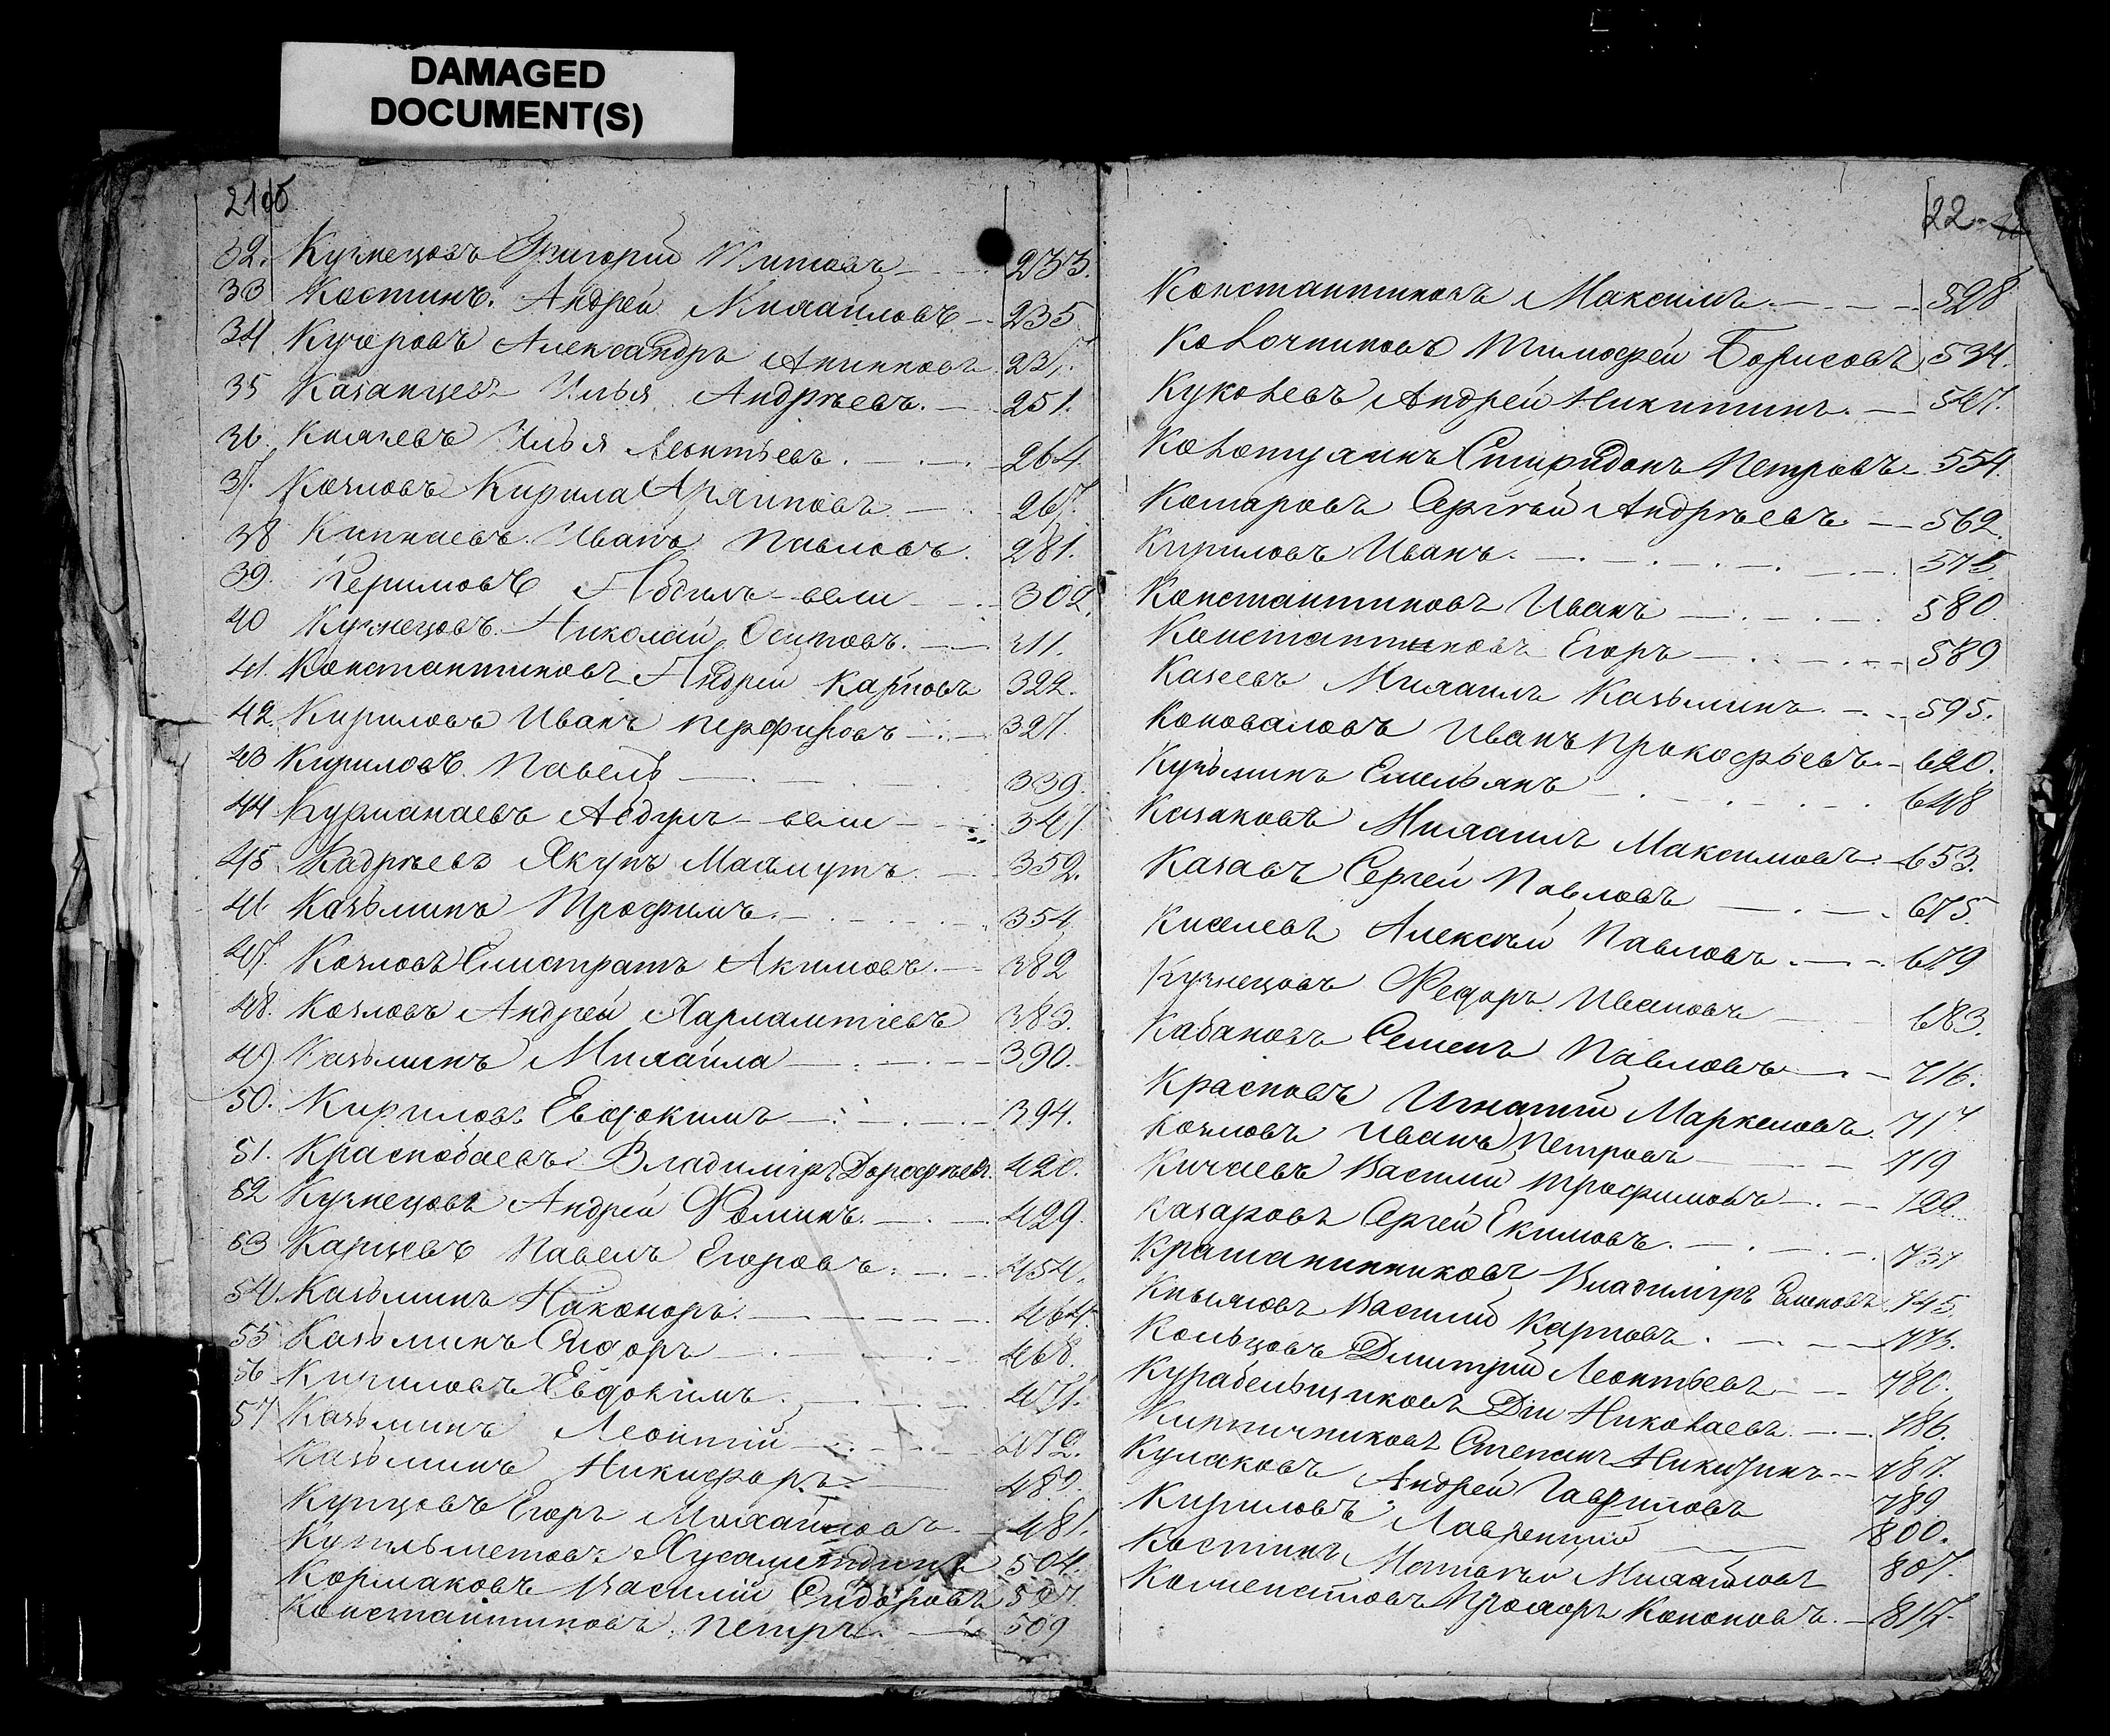 DAMAGED
DOCUMENT(S)
32. Кузнецовъ Григорій Титовъ 233.
33 Костинъ. Андрей Михайловъ 235
34 Кучеровъ Александръ
35 Казанцевъ Илья Андреевъ. 251.
36. Илья Леонтьевъ. 264.
37. Козловъ Кирила Архиповъ 267.
38 Иванъ Павловъ. 281.
39. Керимовъ Абдилъ-вели 302.
40 Кузнецовъ. Николай Осиповъ. 311.
41. Константиновъ Андрей Карповъ 322.
42. Кириловъ Иванъ 327.
43 Кириловъ. Павелъ 339.
44 Курманаевъ Абдулъ-вели 347.
45. Кадреевъ Якупъ Махмутъ 352.
46. Казьминъ Трофимъ. 354
47. Козловъ Елистратъ Акимовъ. 382
48. Козловъ Андрей Харлампіевъ 383.
49 Казьминъ Михайла 390.
50. Кириловъ Евдокимъ 394.
51. Краснобаевъ Владиміръ Дорофѣевъ. 420.
52 Кузнецовъ Андрей Фоминъ. 429.
53 Карцевъ Павелъ Егоровъ. 454.
54. Казьминъ Никоноръ. 464.
55 Казьминъ 468.
56 Кириловъ Евдокимъ. 471.
57 Казьминъ Леонтій 472.
Казьминъ Никифоръ
Купцовъ Егоръ Михайловъ. 481.
504.
Кормаковъ Василій Сидоровъ 507.
Константиновъ Петръ. 509
22
Константиновъ Максимъ. 528
Тимофей Борисовъ 534.
Куколевъ Андрей Никитинъ. 547.
Спиридонъ Петровъ 554.
Комаровъ Сергѣй Андрѣевъ 562.
Кириловъ Иванъ. 575.
Константиновъ Иванъ 580.
Константиновъ Егоръ 589
Казеевъ Михаилъ Казьминъ. 595.
Коноваловъ Иванъ Прокофьевъ. 620.
Кузьминъ Емельянъ 648
Казаковъ Михаилъ Максимовъ. 653.
Казавъ Сергей Павловъ 675.
Киселевъ Алексѣй Павловъ. 679
Кузнецовъ Федоръ Ивановъ 683.
Кабановъ Семенъ Павловъ 716.
Красновъ Игнатій Маркеловъ. 717
Козловъ Иванъ Петровъ 719
Кичаевъ Василій Трофимовъ. 729
Казаровъ Сергей Екимовъ. 737
Владиміръ 745.
Василій Карповъ. 775.
Кольцовъ Дмитрій Леонтьевъ 780.
Курабельщиковъ Николаевъ. 786.
Кирпичниковъ Степанъ Никитинъ 787.
Кулаковъ Андрей Гавриловъ 789.
Кириловъ Лаврентій 800.
Костинъ Михайловъ 807.
Прохоръ Кононовъ. 817.